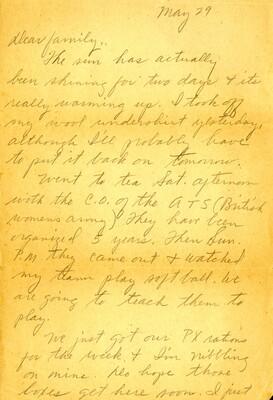 May 29
Dear family,
The sun has actually
been shining for two days & its
really warming up. I took off
my wool undershirt yesterday,
although I'll probably have
to put it back on tomorrow.
Went to tea Sat. afternoon
with the C.O. of the ATS (British
womens army) They have been
organized 5 years. Then Sun.
PM they came out & watched
my team play softball. We
are going to teach them to
play.
We just got our PX rations
for the week & I'm nibbling
on mine. Do hope those
boxes get here soon. I just